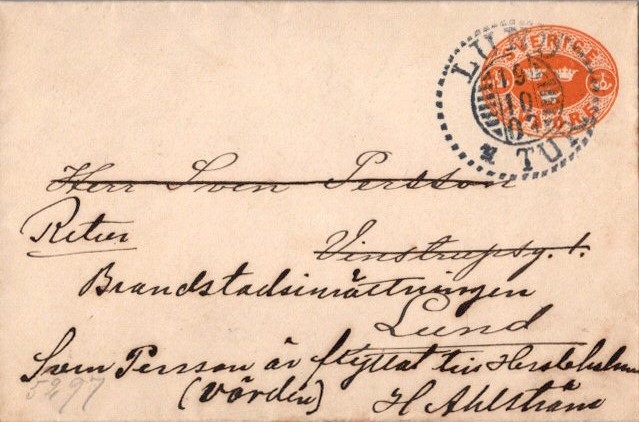 SVERIGE
LUND
19
10
07
TUR
Herr Sven Persson
Retur
Vinstrupsg. 1.
Brandstadsinrättningen
Lund
Sven Persson är flyttat till
(Vården) H Ahlström
5297